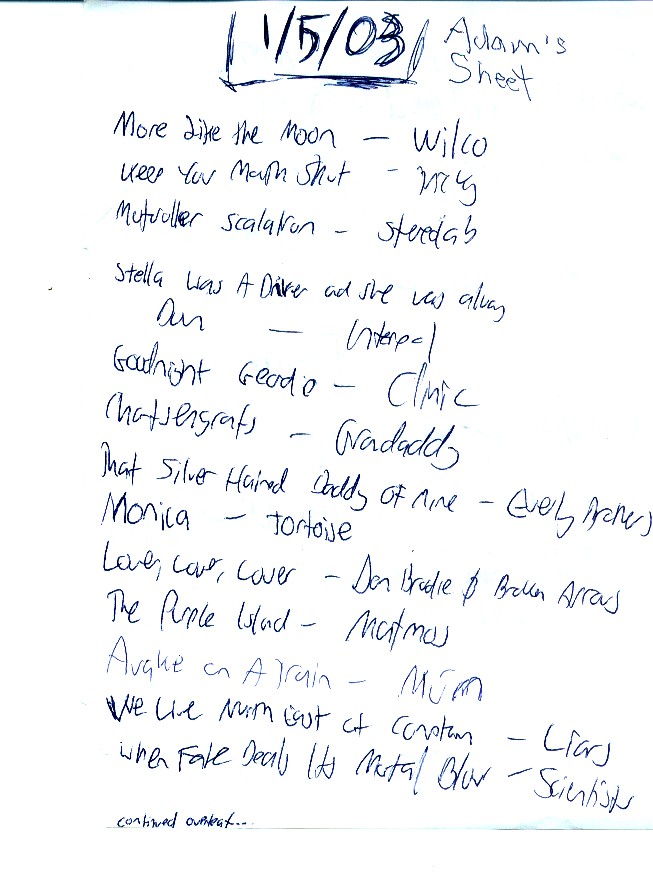 1/5/03 Adam's
Sheet
More Like the Moon – Wilco
Keep You Mouth Shut –
Motroller Scalatron – Stereolab
Stella was A Driver and she was alway
Dun – Interpol
Goodnight Geordie – Clinic
Chartsengrafs – Grandaddy
That Silver Haired Daddy Of Mine – Everly Brothers
Monica – Tortoise
Lover, Lover, Lover – Dan Brodie & Broken Arrows
The Purple Island – Matmos
Awake on A Train – Múm
We Live North East of Compton – Liars
When Fate Deals Its Mortal Blow – Scientists
continued overleaf...